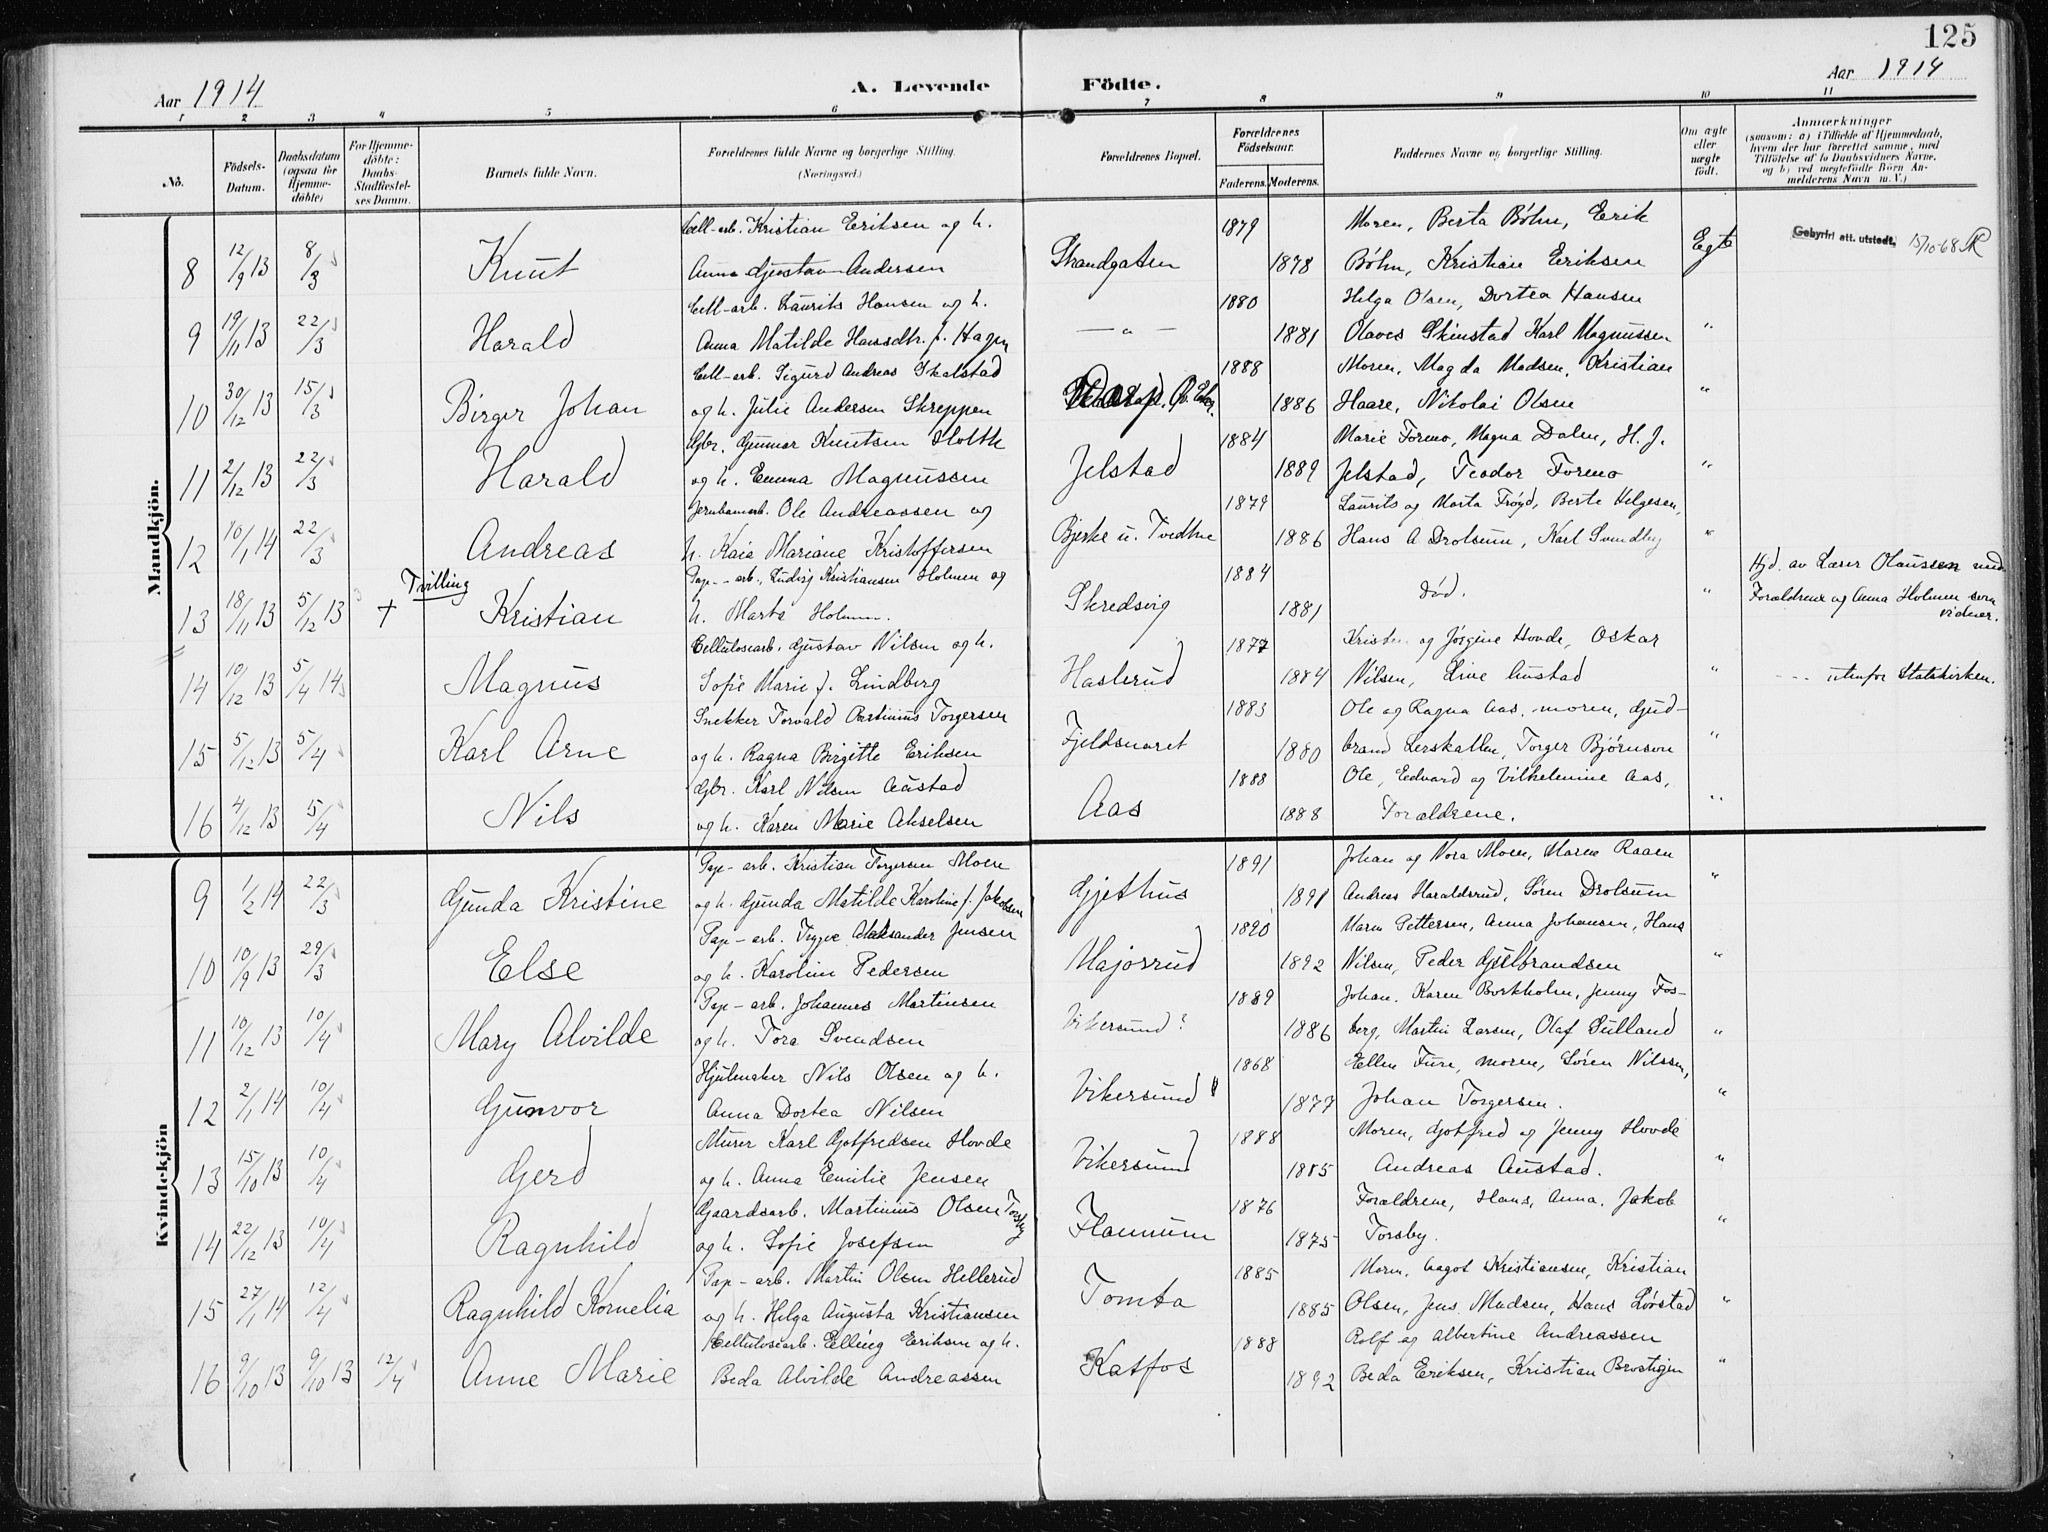 125
Aar 1914
A. Levende Födte.
Aar 1914
1 2 3 4 5 6 7 8 9 10 11
No.
Födsels-Datum.
Daabsdatum (ogsaa for Hjemme-döbte)
For Hjemme-döbte: Daabs-Stadfæstel-ses Datum.
Barnets fulde Navn.
Forældrenes fulde Navne og borgerlige Stilling.
(Næringsvei.)
Forældrenes Bopæl.
Forældrenes Födselsaar.
Faderens. Moderens.
Faddernes Navne og borgerlige Stilling.
Om ægte eller uægte födt.
Anmærkninger
(saasom: a) i Tilfælde af Hjemmedaab,
hvem der har forrettet samme, med
Tilföielse af to Daabsvidners Navne,
og b) ved uægtefödte Börn An-
melderens Navn m. V.)
Mandkjön.
Cell-arb. Kristian Eriksen og h. 1879 Moren, Berta Bøhn, Erik
8 12/9 13 8/3 Knut Anna Gustav Andersen Strandgaten 1878 Bøhn, Kristian Eriksen Egte Gebyrfri att. utstedt. 15/10-68
Cell-arb. Laurits Hansen og h. 1880 Helga Olsen, Dortea Hansen
9 19/11 13 22/3 Harald Anna Matilde Hansdtr. f. Hagen — " — 1881 Olaves Skinstad Karl Magnussen "
Cell-arb. Sigurd Andreas Skalstad 1888 Moren, Magda Madsen, Kristian
10 30/12 13 15/3 Birger Johan og h. Julie Andersen Skreppen 1886 Haare, Nikolai Olsen "
Gbr. Gunnar Knutsen Holth 1884 Marie Formo, Magna Dalen, H. J.
11 2/12 13 22/3 Harald og h. Emma Magnussen Jelstad 1889 Jelstad, Teodor Formo "
Jernbanearb. Ole Andreassen og 1879 Laurits og Marta Frøyd, Berte Helgesen,
12 10/1 14 22/3 Andreas h. Kaia Mariane Kristoffersen Bjerke u. Tvedtne 1886 Hans A Drolsum, Karl Svendby "
Tvilling Pap-arb. Ludvig Kristiansen Holmen og 1884 Hjd. av Lærer Olaussen med
13 18/11 13 5/12 13 + Kristian h. Marta Holmen. Skredsvig 1881 død. " Forældrene og Anna Holmen som vidner.
Cellulosearb. Gustav Nilsen og h. 1877 Kristen og Jørgine Hovde, Oskar
14 10/12 13 5/4 14 Magnus Sofie Marie f. Lindberg Haslerud 1884 Nilsen, Live Austad " utenfor Statskirken.
Snekker Torvald Martinius Torgersen 1883 Ole og Ragna Aas, moren, Gud-
15 5/12 13 5/4 Karl Arne og h. Ragna Birgitte Eriksen Fjeldsnaret 1880 brand Lerskallen, Torger Bjørnson "
Gbr. Karl Nilsen Austad 1888 Ole, Edvard og Vilhelmine Aas,
16 4/12 13 5/4 Nils og h. Karen Marie Akselsen Aas 1888 Forældrene. "
Kvindekjön
Pap-arb. Kristian Torgersen Moen 1891 Johan og Nora Moen, Maren Raaen
9 1/2 14 22/3 Gunda Kristine og h. Gunda Matilde Karoline f. Jakobsen Gjethus 1891 Andreas Haraldsrud, Søren Drolsum "
Pap-arb. Trygve Aleksander Jensen 1890 Maren Pettersen, Anna Johansen, Hans
10 10/9 13 29/3 Else og h. Karoline Pedersen Majorrud 1892 Nilsen, Peder Gulbrandsen "
Pap-arb. Johannes Martinsen 1889 Johan, Karen Borkholm, Jenny Fos-
11 10/12 13 10/4 Mary Alvilde og h. Tora Svendsen Vikersund 1886 berg, Martin Larsen, Olaf Sulland "
Hjulmaker Nils Olsen og h. 1868 Ellen Fure, moren, Søren Nilssen,
12 2/1 14 10/4 Gunvor Anna Dortea Nilsen Vikersund 1877 Johan Torgersen. "
Murer Karl Gotfredsen Hovde 1888 Moren, Gotfred og Jenny Hovde
13 15/10 13 10/4 Gerd og h. Anna Emilie Jensen Vikersund 1885 Andreas Austad. "
Gaardsarb. Martinius Olsen Torsby 1876 Forældrene, Hans, Anna, Jakob
14 22/12 13 10/4 Ragnhild og h. Sofie Josefsen Flannum 1875 Torsby. "
Pap-arb. Martin Olsen Hellerud 1885 Moren, Aagot Kristiansen, Kristian
15 27/1 14 12/4 Ragnhild Kornelia og h. Helga Augusta Kristiansen Tomta 1885 Olsen, Jens Madsen, Hans Løvstad "
Cellulosearb. Elling Eriksen og h. 1888 Rolf og Albertine Andreassen
16 9/10 13 9/10 13 12/4 Anne Marie Beda Alvilde Andreassen Katfos 1892 Beda Eriksen, Kristian Brostigen "